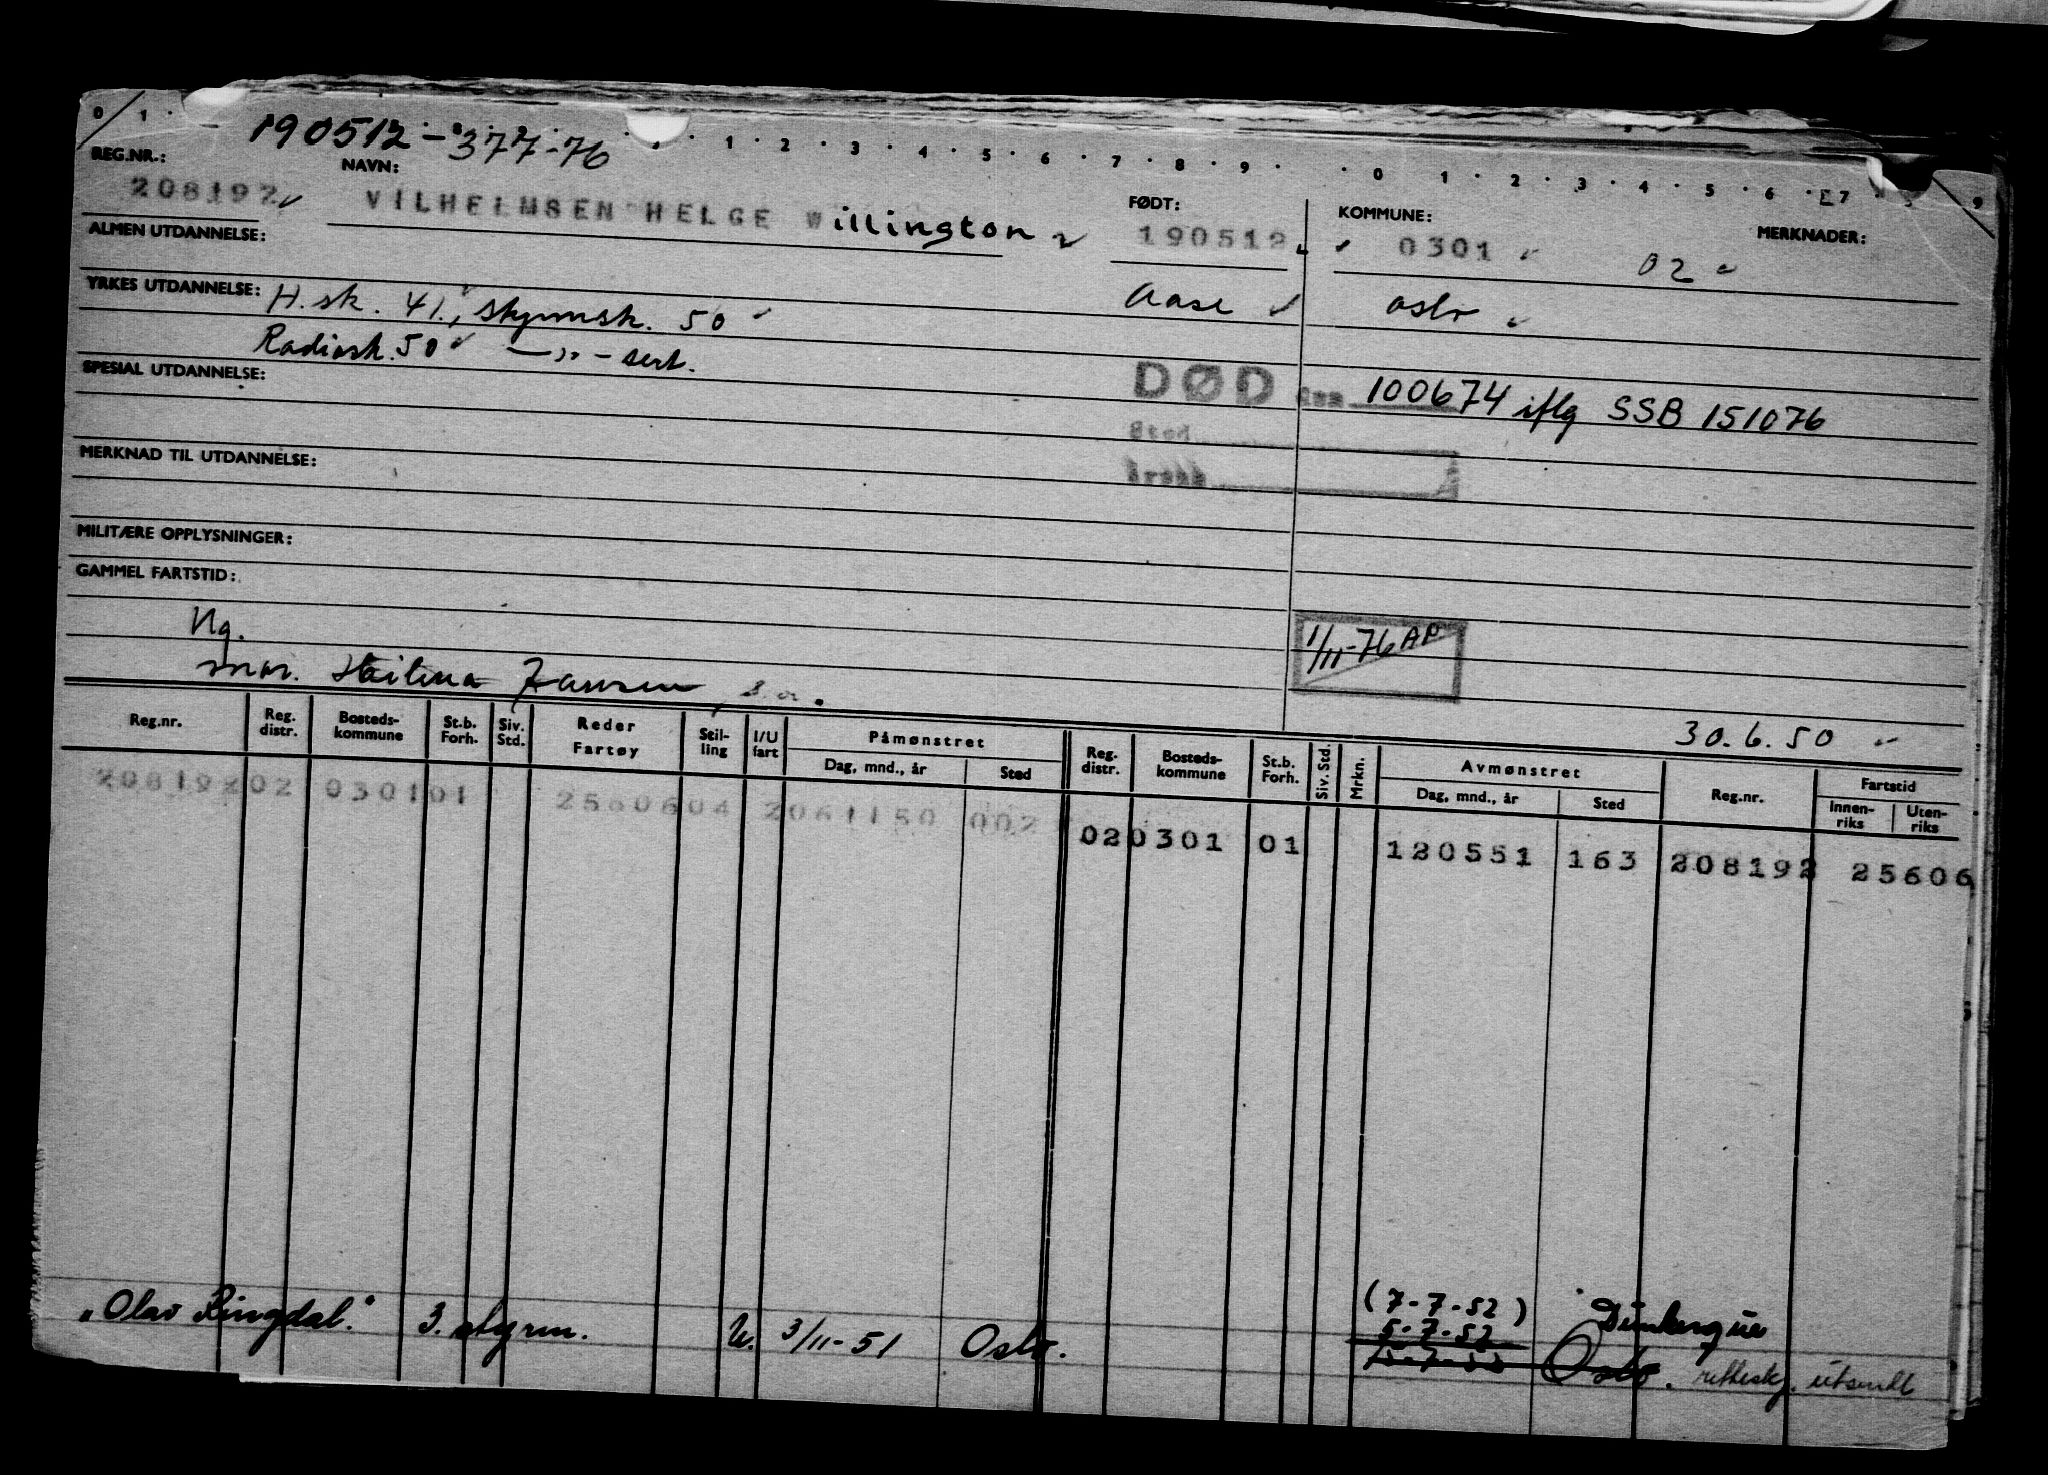 0 1 . 190512-37776 1 . 2 . 3 . 4 . 5 . 6 . 7 . 8 . 9 . . 0 1 . 2 . 3 . 4 . 5 . 6 . 7 9
REG.NR.: NAVN: FØDT: KOMMUNE: MERKNADER:
208192 VILHELMSEN HELGE Willington 190512 0301 02
ALMEN UTDANNELSE:
YRKES UTDANNELSE: H.sk. 41., styrmsk. 50 Aase Oslo
Radiosk. 50 —„— sert.
SPESIAL UTDANNELSE: DØD den 100674 iflg SSB 151076
Sted
Årsak
MERKNAD TIL UTDANNELSE:
MILITÆRE OPPLYSNINGER:
GAMMEL FARTSTID:
Ug. 1/11-76 AP
mor. Hansen
30.6.50
Reg.nr. Reg. distr. Bosteds-kommune St.b. Forh. Siv. Std. Reder Fartøy Stil-ling I/U fart Påmønstret Dag, mnd., år Sted Reg. distr. Bosteds-kommune St.b. Forh. Siv. Std. Mrkn. Avmønstret Dag, mnd., år Sted Reg.nr. Fartstid Innen-riks Uten-riks
208192 02 0301 01 25606 04 2 061150 002 02 0301 01 120551 163 208192 25606
(7-7-52) Dunkerque
5-7-52
"Olav Ringdal." 3. styrm. U. 3/11-51 Oslo. Oslo. utsendt